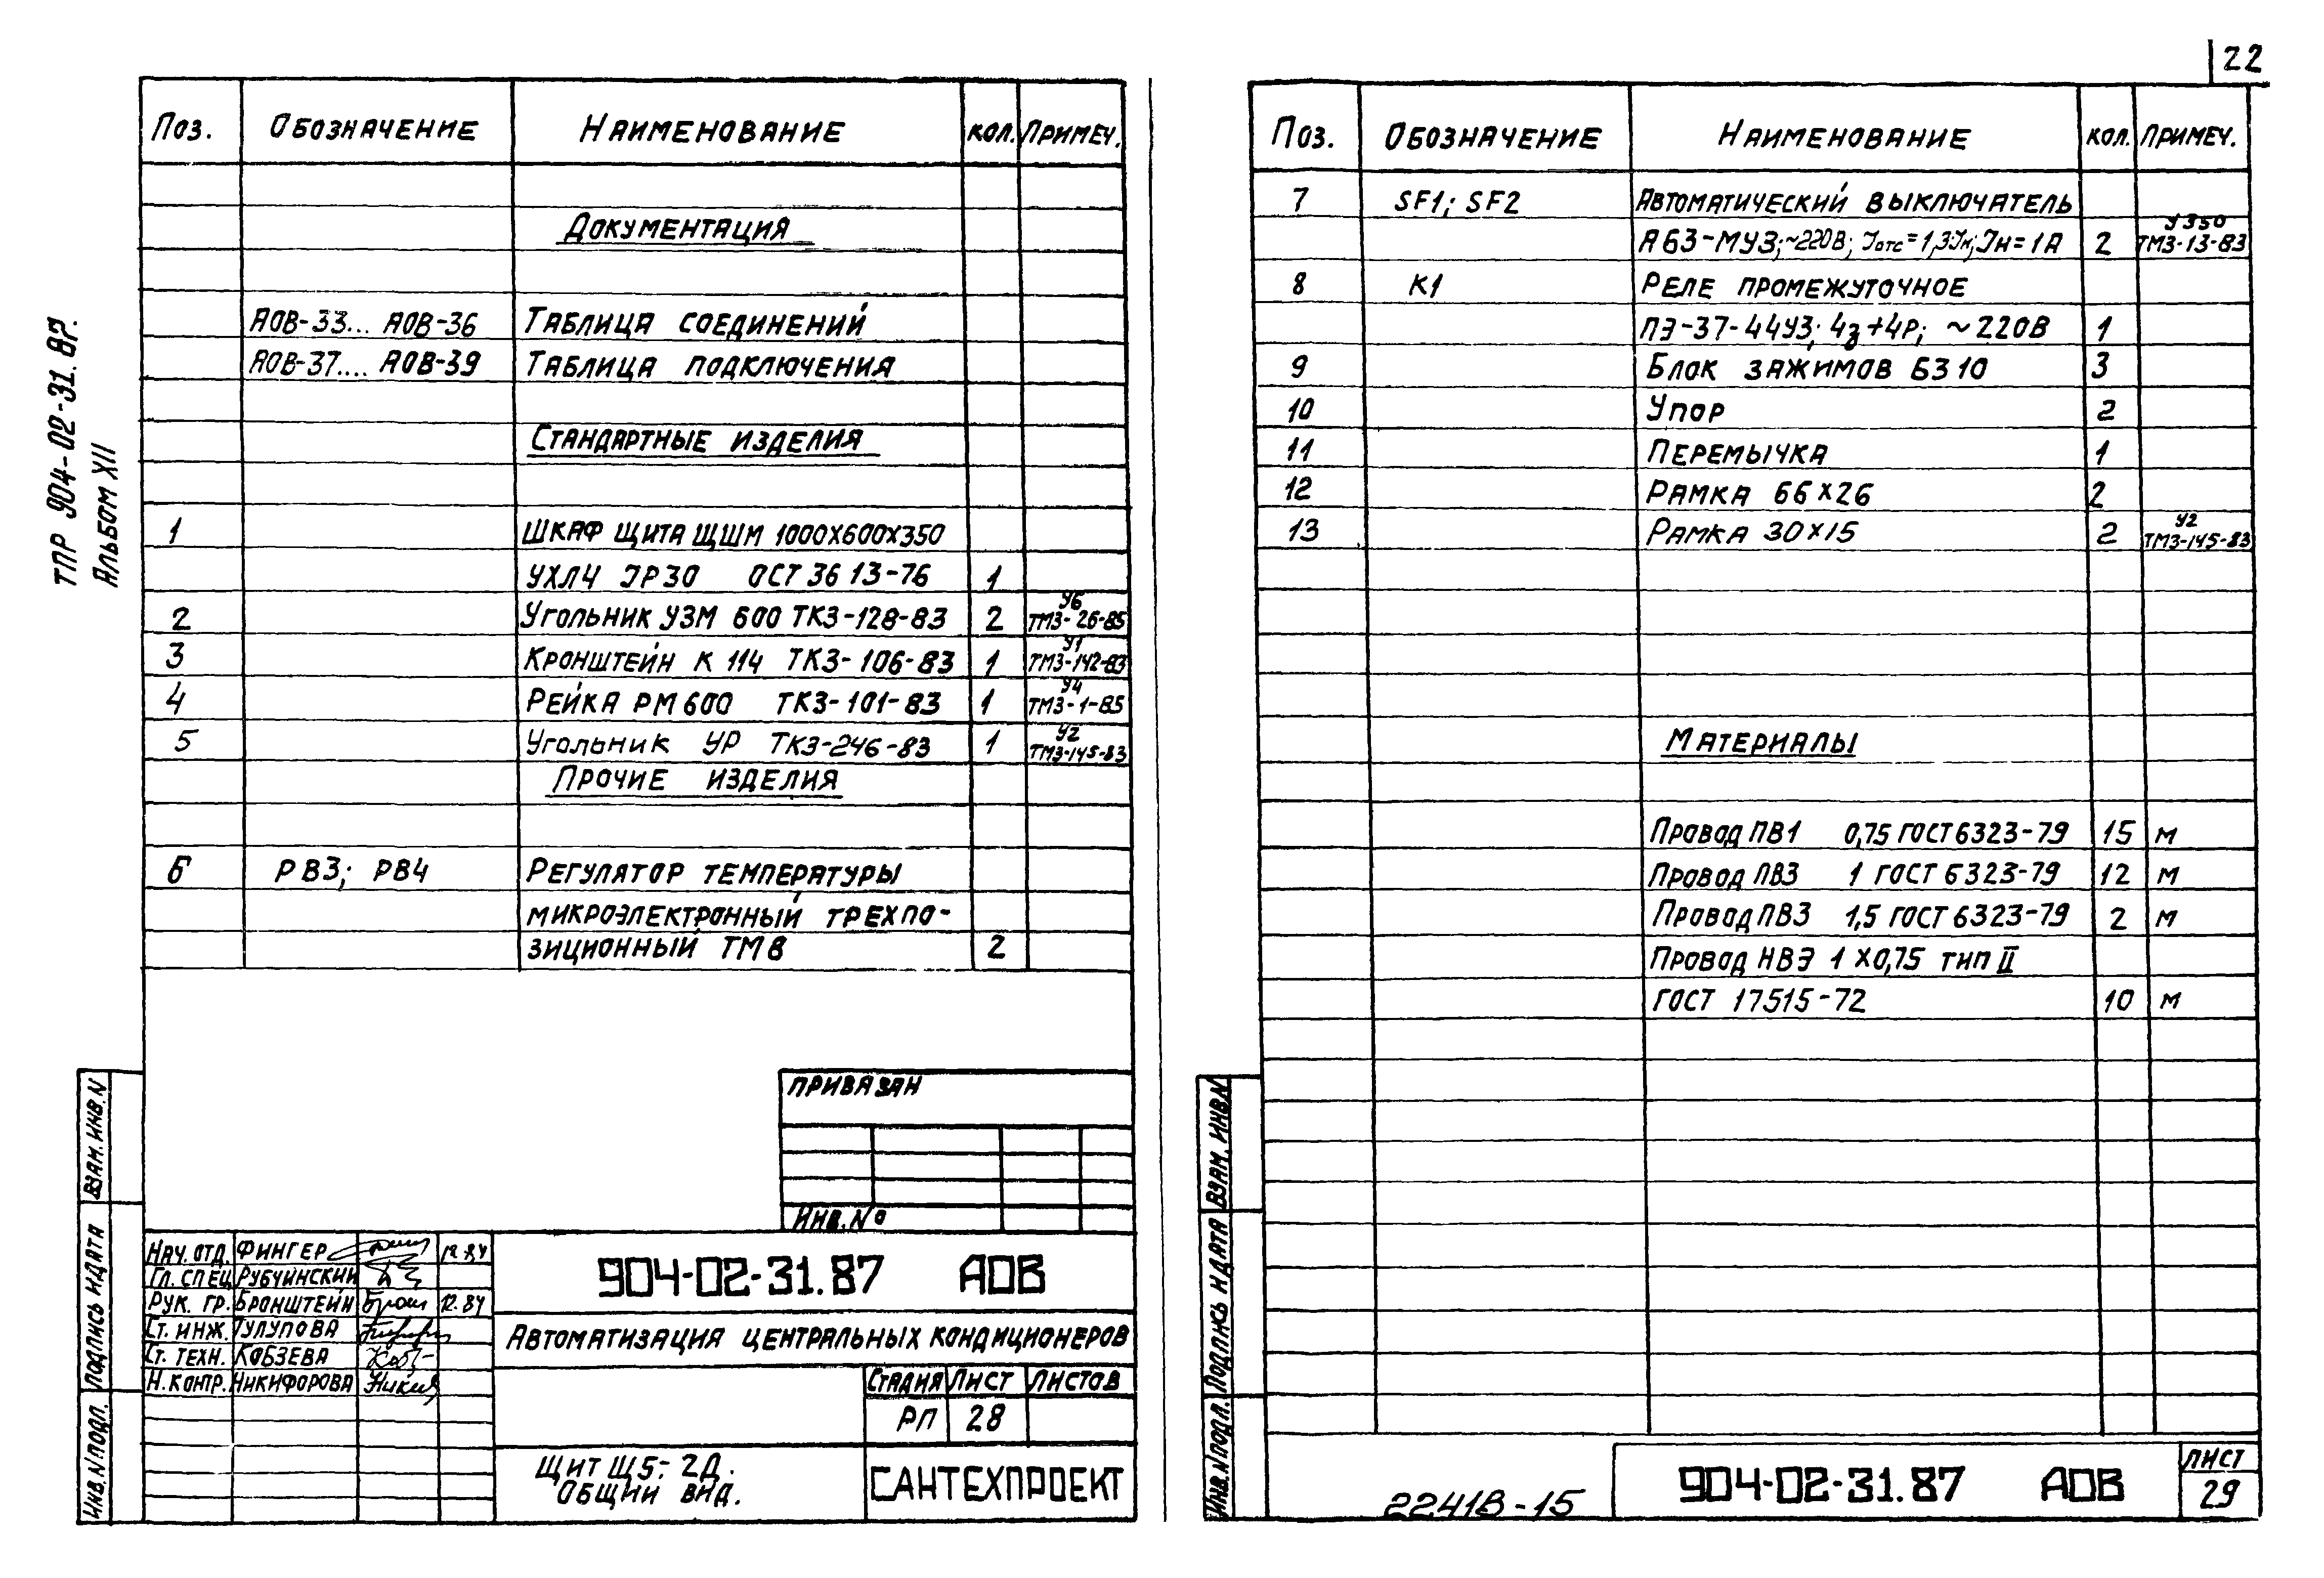 22
ТПР 904-02-31.87.
Альбом XII
Поз. Обозначение Наименование кол. Примеч.
Документация
АОВ-33... АОВ-36 Таблица соединений
АОВ-37.... АОВ-39 Таблица подключения
Стандартные изделия
1 Шкаф щита ЩШМ 1000х600х350
УХЛ4 IP30 ОСТ 36 13-76 1
2 Угольник УЗМ 600 ТК3-128-83 2 У6 ТМ3-26-85
3 Кронштейн К 114 ТК3-106-83 1 У1 ТМ3-142-83
4 Рейка РМ 600 ТК3-101-83 1 У4 ТМ3-1-85
5 Угольник УР ТК3-246-83 1 У2 ТМ3-145-83
Прочие изделия
6 РВ3; РВ4 Регулятор температуры
микроэлектронный трехпо-
зиционный ТМ8 2
Привязан
Инв.№
Нач. отд. Фингер 12.84
Гл. спец Рубчинский
Рук. гр. Бронштейн 12.84
Ст. инж. Тулупова
Ст. техн. Кобзева
Н. контр. Никифорова
904-02-31.87 АОВ
Автоматизация центральных кондиционеров
Стадия Лист Листов
РП 28
Щит Щ5-2Д.
Общий вид.
САНТЕХПРОЕКТ
Взам. инв. N
Подпись и дата
Инв. N подл.
Поз. Обозначение Наименование кол. Примеч.
7 SF1; SF2 Автоматический выключатель
А63-МУ3; ~220В; Iотс=1,3Iн; Iн=1А 2 У350 ТМ3-13-83
8 К1 Реле промежуточное
ПЭ-37-44У3; 4з+4р; ~220В 1
9 Блок зажимов БЗ 10 3
10 Упор 2
11 Перемычка 1
12 Рамка 66х26 2
13 Рамка 30х15 2 У2 ТМ3-145-83
Материалы
Провод ПВ1 0,75 ГОСТ 6323-79 15 м
Провод ПВ3 1 ГОСТ 6323-79 12 м
Провод ПВ3 1,5 ГОСТ 6323-79 2 м
Провод НВЭ 1х0,75 тип II
ГОСТ 17515-72 10 м
Взам. инв. N
Подпись и дата
Инв. N подл.
22418-15
904-02-31.87 АОВ
Лист
29